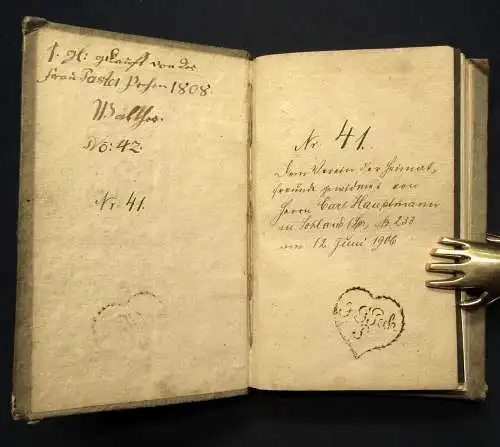 f. gl: gekauft von der
Frau Pastor 1808
Walther.
No: 42
Nr. 41.
Nr. 41.
Dem Verein der Heimat-
freunde gewidmet von
Herrn Carl Hauptmann
in Sohland /Sp. № 233
am 12. Juni 1906